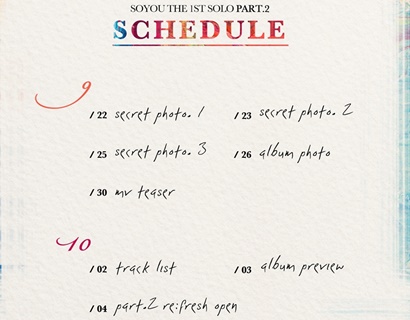 SOYOU THE 1ST SOLO PART.2
SCHEDULE
9
/ 22 secret photo. 1 / 23 secret photo. 2
/ 25 secret photo. 3 / 26 album photo
/ 30 mv teaser
10
/ 02 track list / 03 album preview
/ 04 part.2 re:fresh open